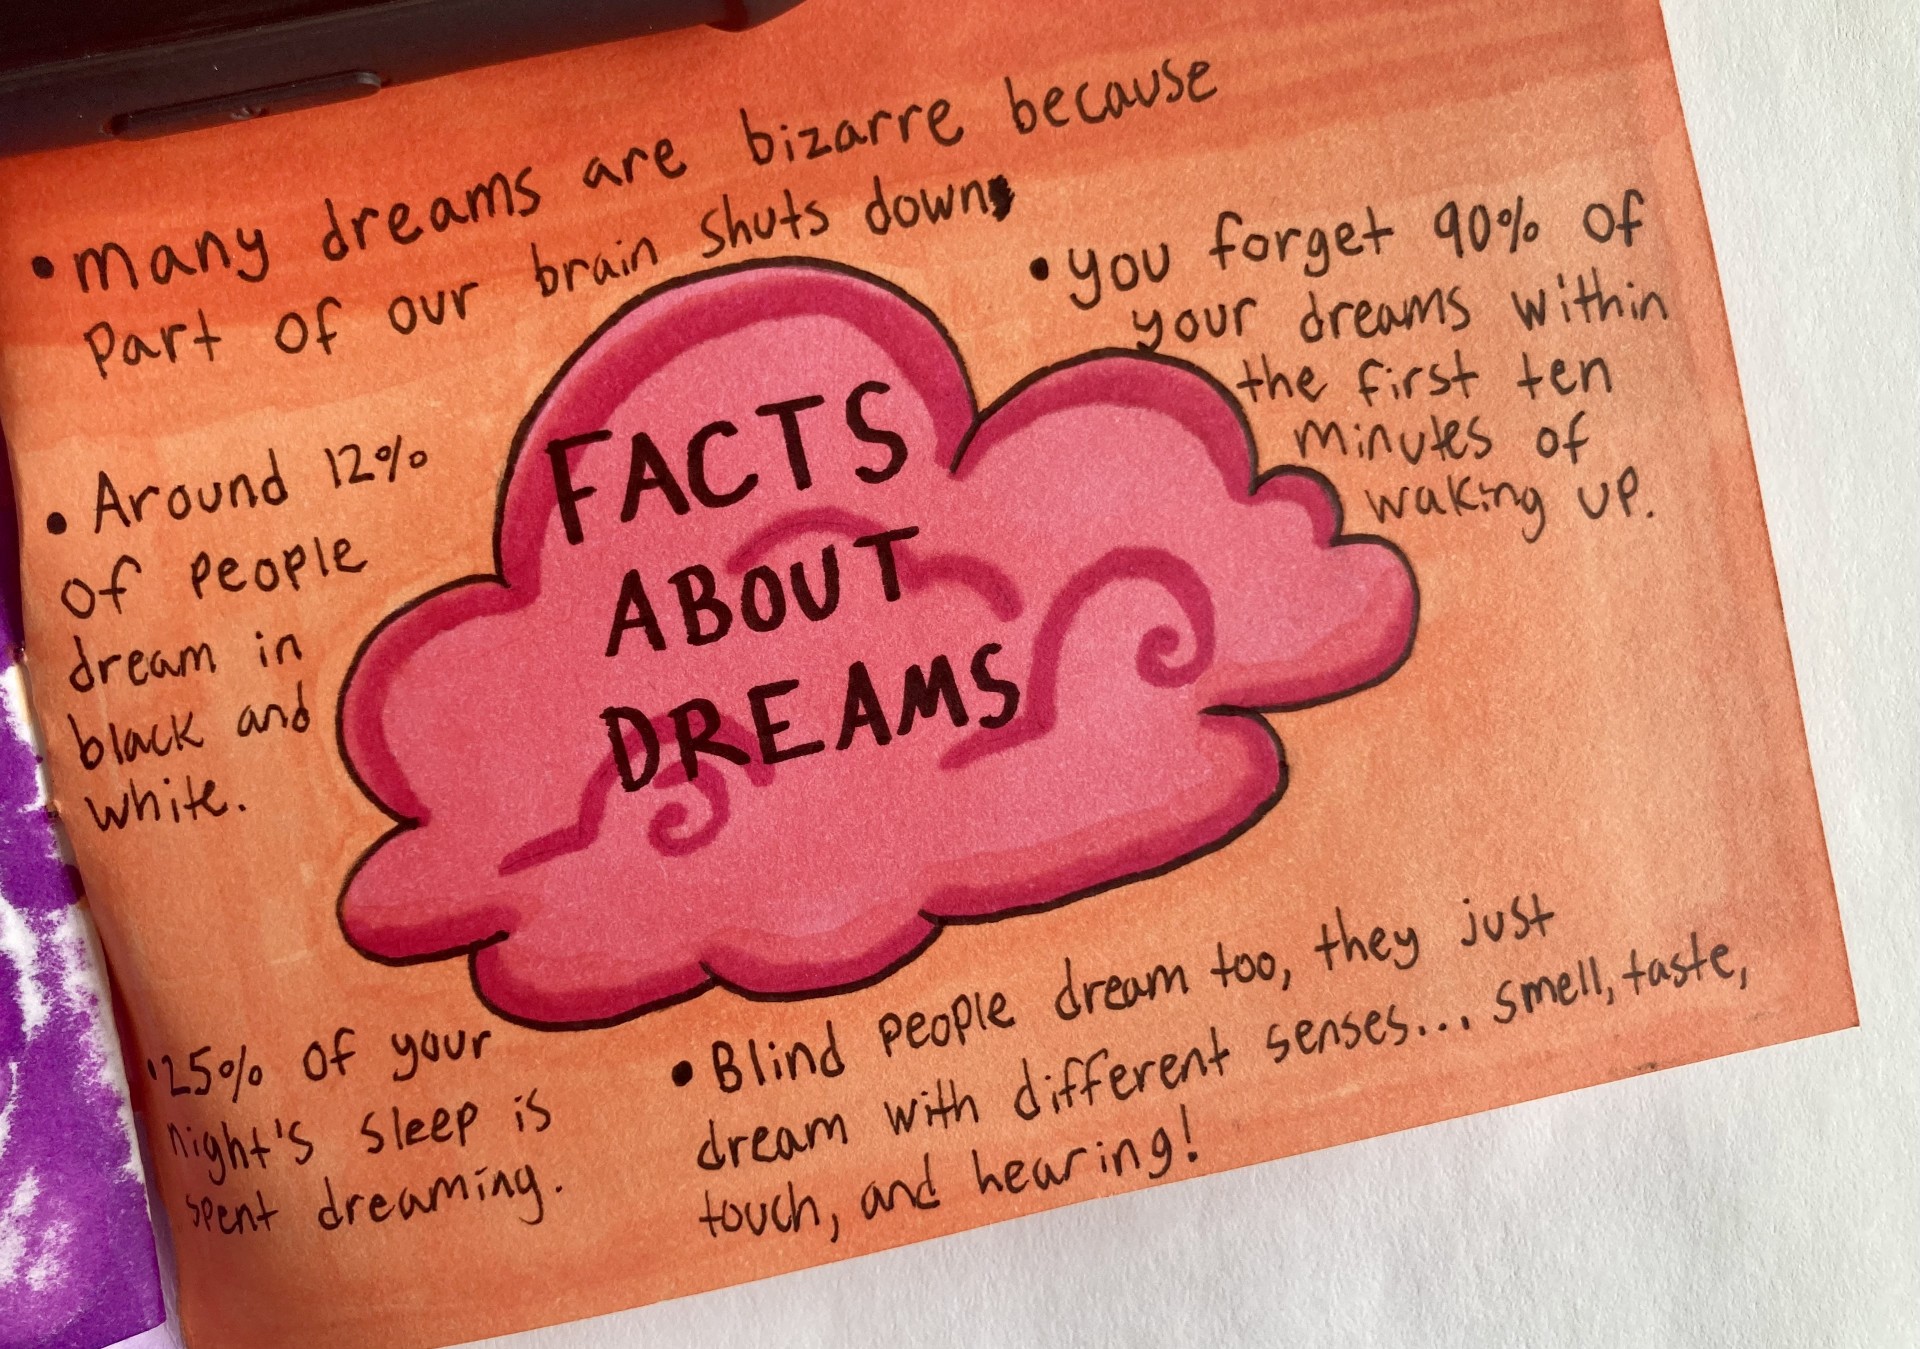 FACTS
ABOUT
DREAMS
• Many dreams are bizarre because
part of our brain shuts down.
• You forget 90% of
your dreams within
the first ten
minutes of
waking up.
• Around 12%
of people
dream in
black and
white.
• 25% of your
night's sleep is
spent dreaming.
• Blind people dream too, they just
dream with different senses... smell, taste,
touch, and hearing!